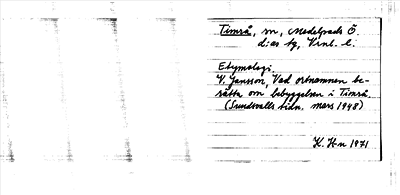 Timrå, sn, Medelpads Ö.
d:as tg, Vnl. l.
Etymologi.
V. Jansson, Vad ortnamnen be-
rätta om bebyggelsen i Timrå
(Sundsvalls tidn. mars 1948)
K. H-n 1971